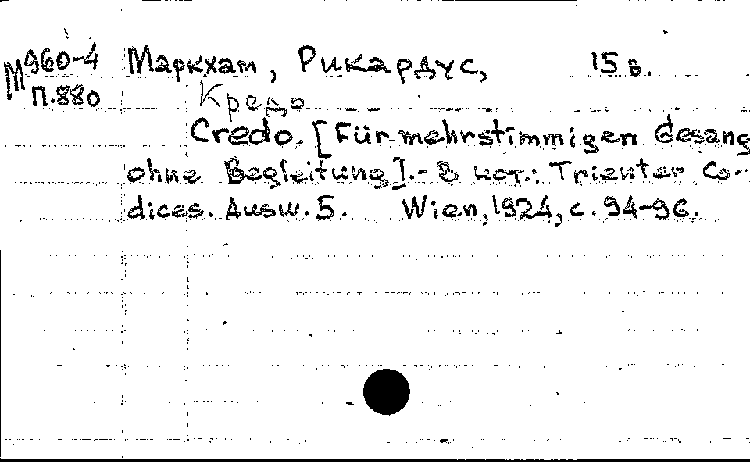 М960-4 Маркхам, Рикардус, 15 в.
П.880 Кредо
Credo. [Für mehrstimmigen Gesang
ohne Begleitung].- В нот.: Trienter Co-
dices. Ausw. 5. Wien, 1924, с. 94-96.